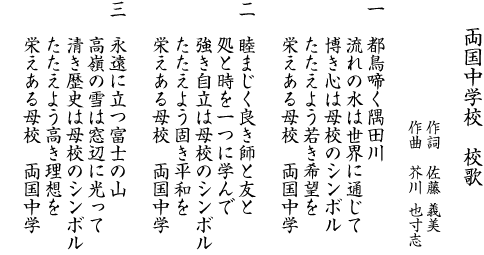 両国中学校　校歌
作詞　佐藤 義美
作曲　芥川 也寸志
一　都鳥啼く隅田川
流れの水は世界に通じて
博き心は母校のシンボル
たたえよう若き希望を
栄えある母校　両国中学
二　睦まじく良き師と友と
処と時を一つに学んで
強き自立は母校のシンボル
たたえよう固き平和を
栄えある母校　両国中学
三　永遠に立つ富士の山
高嶺の雪は窓辺に光って
清き歴史は母校のシンボル
たたえよう高き理想を
栄えある母校　両国中学